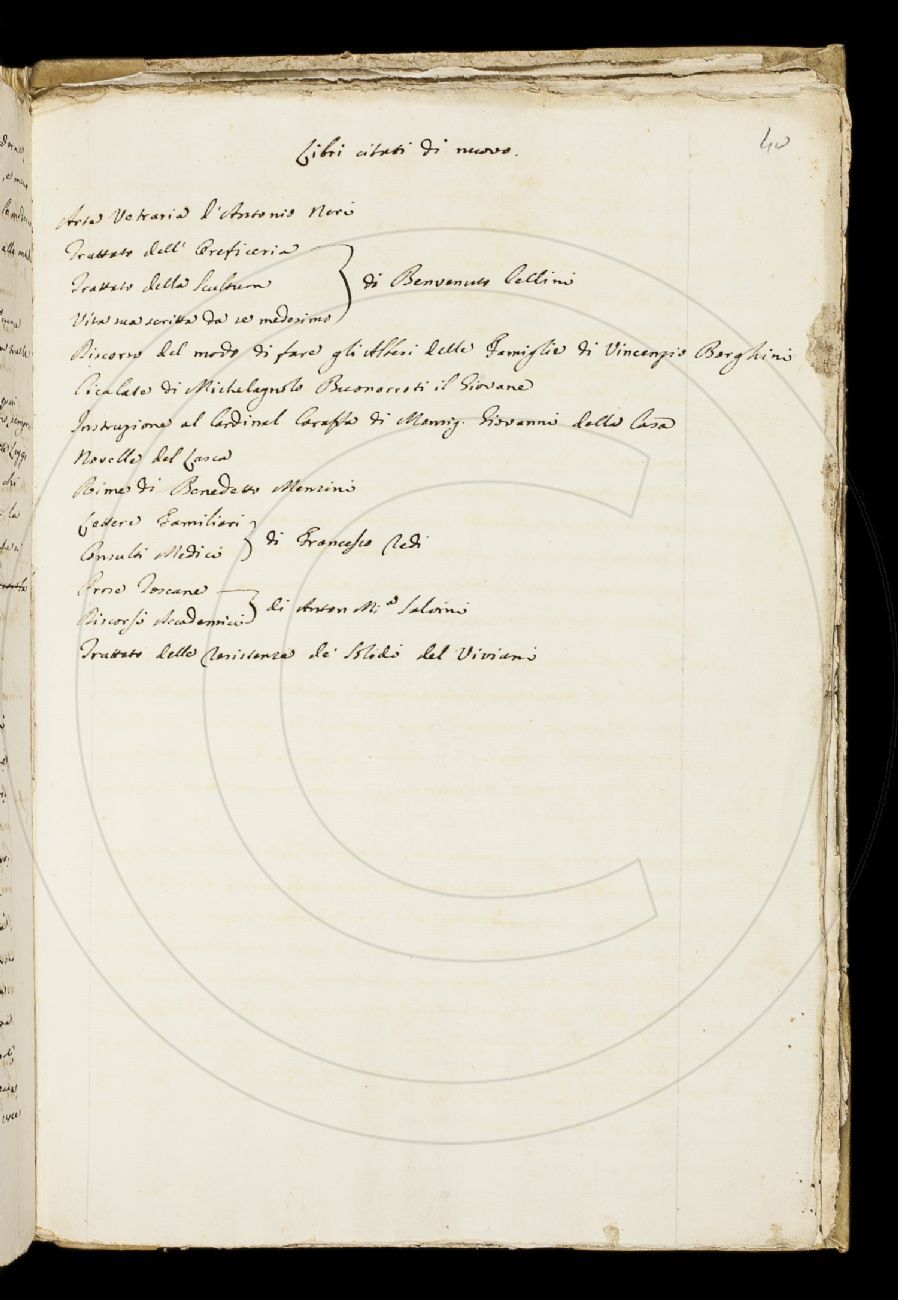 40
Libri citati di nuovo.
Arte Vetraria d'Antonio Neri
Trattato dell' Oreficeria
Trattato della Scultura
di Benvenuto Cellini
Vita sua scritta da se medesimo
Discorso del modo di fare gli Alberi delle Famiglie di Vincenzio Borghini
Cicalate di Michelagnolo Buonarroti il Giovane
Instruzione al Cardinal Caraffa di Monsig. Giovanni della Casa
Novelle del Lasca
Rime di Benedetto Menzini
Lettere Familiari
Consulti Medici
di Francesco Redi
Prose Toscane
Discorsi Accademici
di Anton M.a Salvini
Trattato delle Resistenze de' Solidi del Viviani